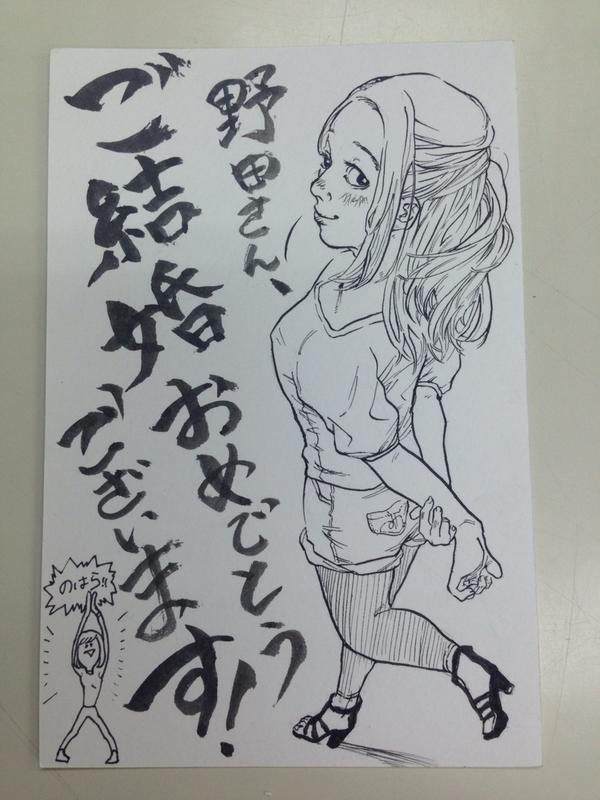 野田さん、
ご結婚おめでとう
ございます!
のはら!!